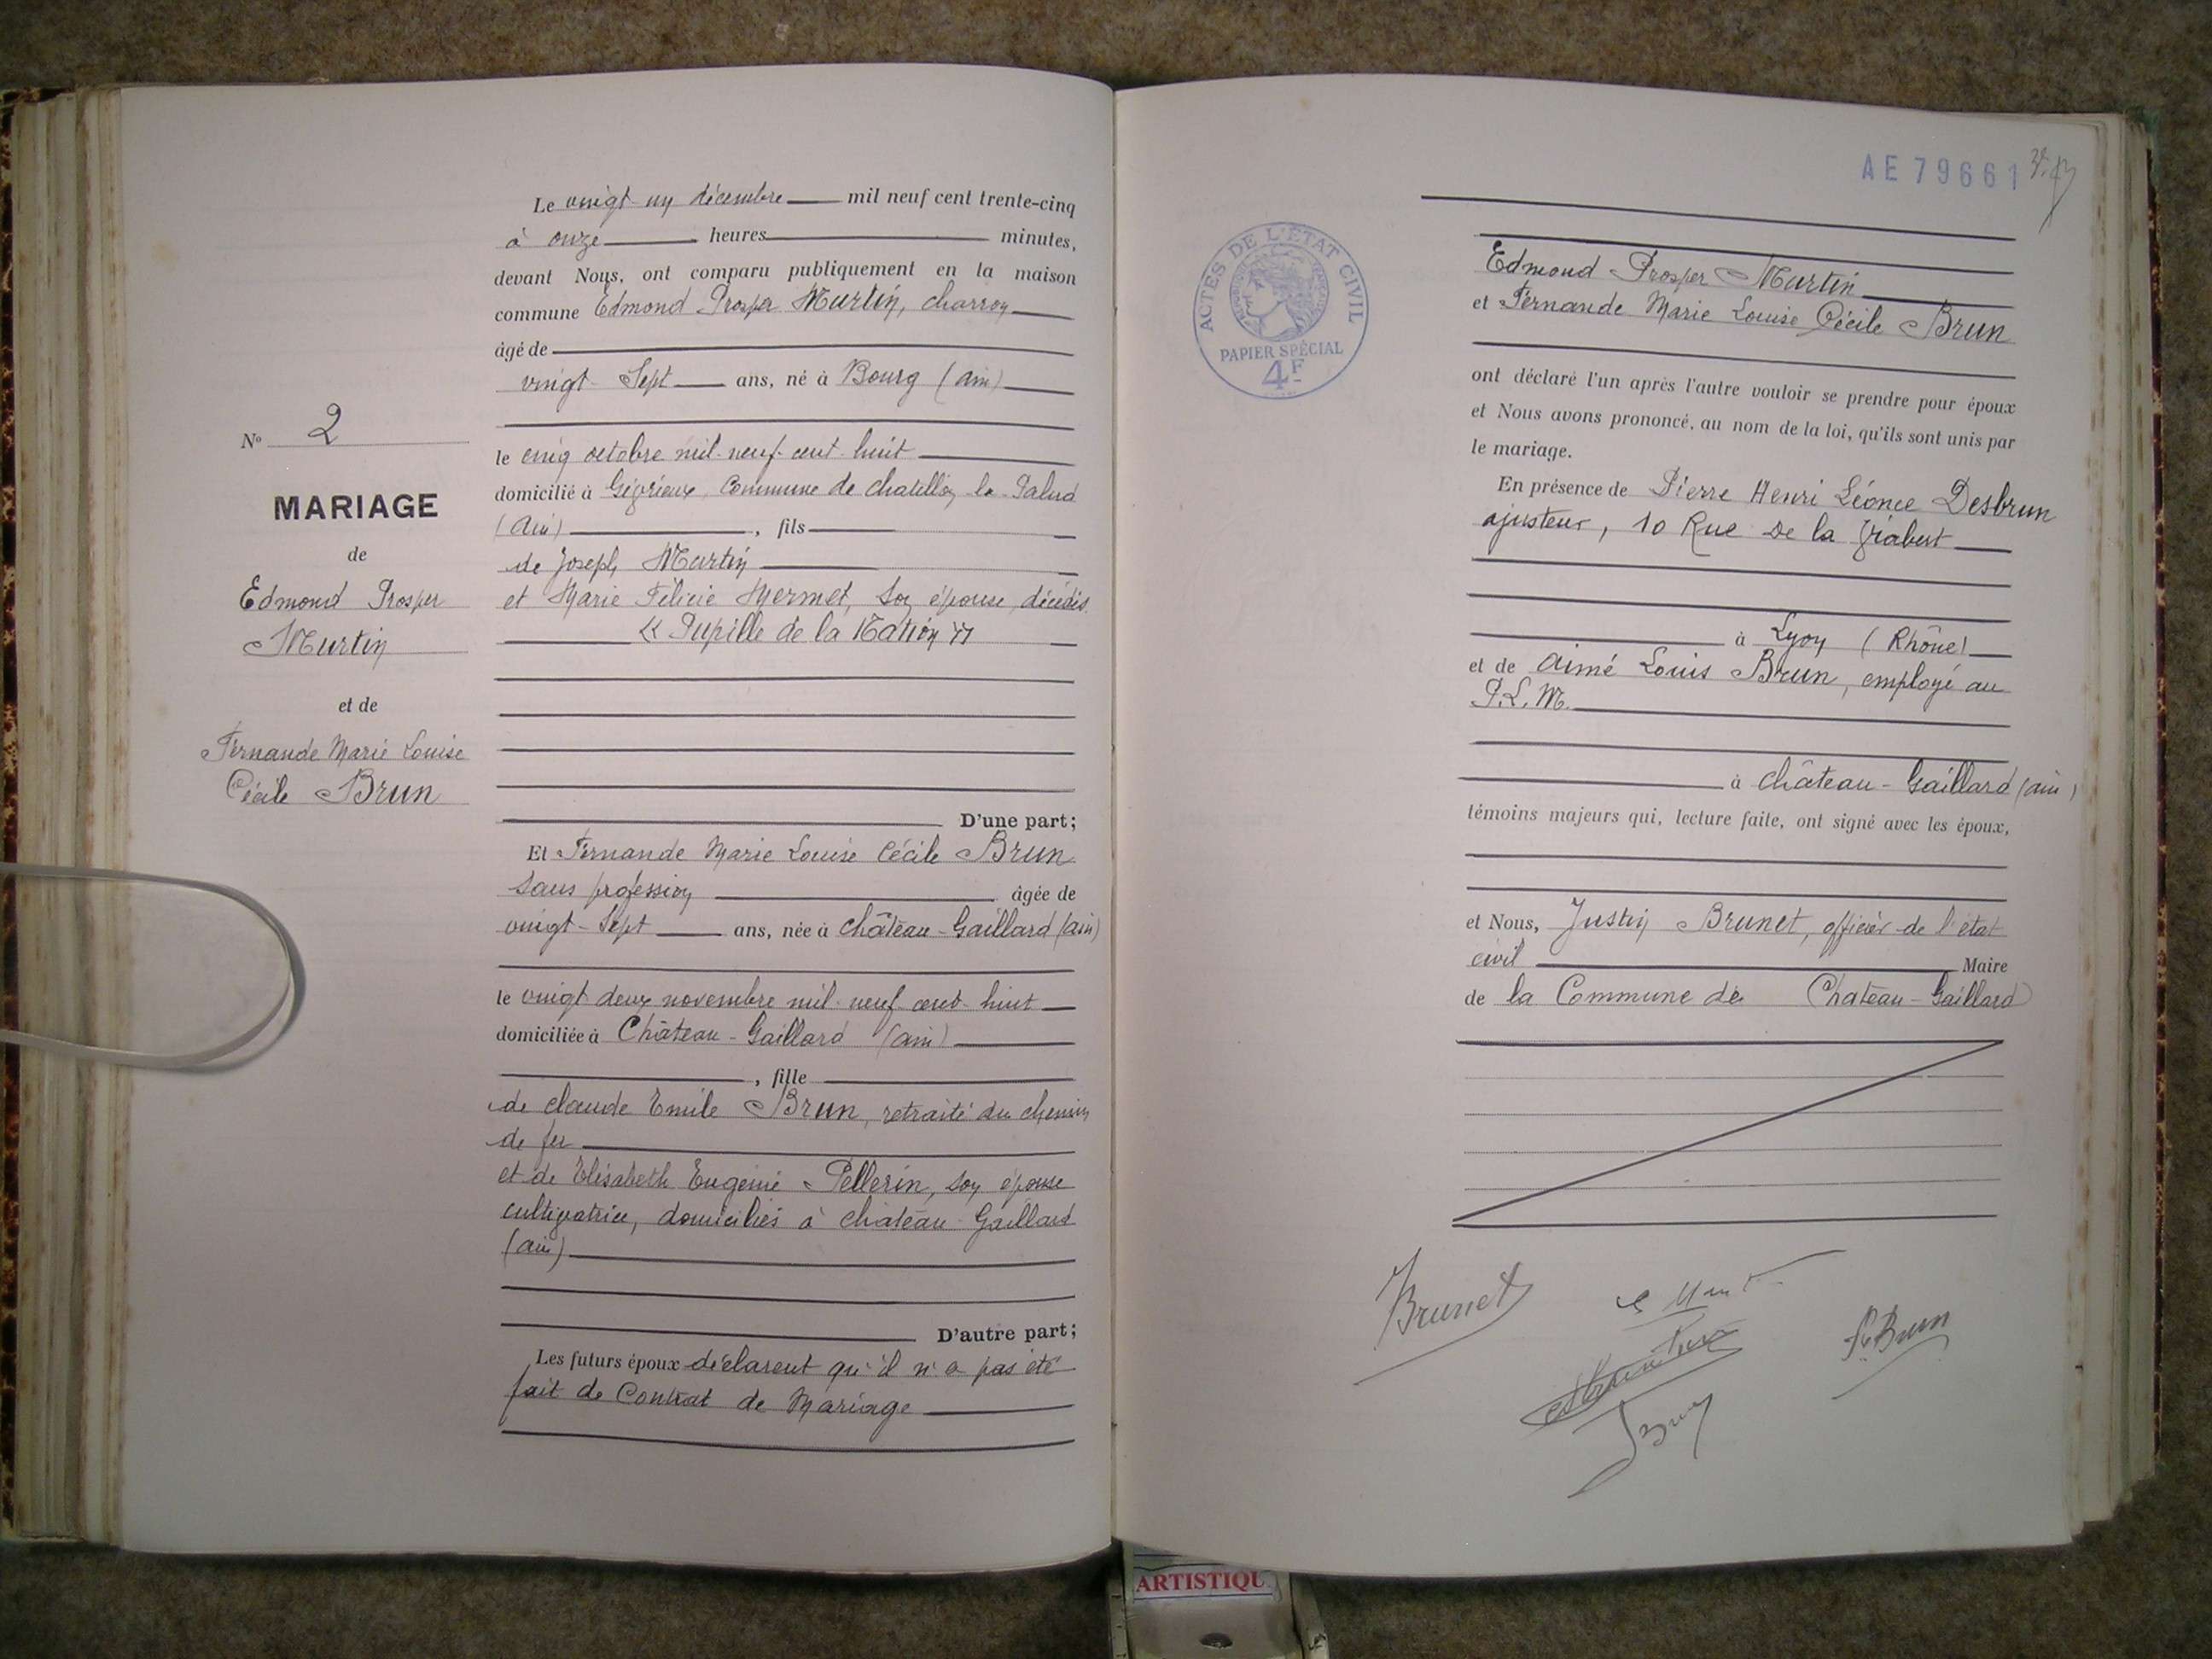 Le vingt-un décembre mil neuf cent trente-cinq
à onze heures minutes,
devant Nous, ont comparu publiquement en la maison
commune Edmond Prosper Murtin, charron
âgé de
vingt-Sept ans, né à Bourg (ain)
le cinq octobre mil-neuf-cent-huit
domicilié à Gévrieux, Commune de chatillon la-Palud
(Ain), fils
de Joseph Murtin
et Marie Félicie Mermet, son épouse, décédés
« Pupille de la Nation »
D'une part;
Et Fernande Marie Louise Cécile Brun
Sans profession âgée de
vingt-Sept ans, née à Château-Gaillard (ain)
le vingt deux novembre mil-neuf-cent-huit
domiciliée à Château-Gaillard (ain)
, fille
de claude Emile Brun, retraité du chemin
de fer
et de Elisabeth Eugénie Pellerin, son épouse
cultivatrice, domiciliés à château-Gaillard
(ain)
D'autre part;
Les futurs époux déclarent qu'il n'a pas été
fait de Contrat de Mariage
No 2
MARIAGE
de
Edmond Prosper
Murtin
et de
Fernande Marie Louise
Cécile Brun
AE 79661
ACTES DE L'ÉTAT CIVIL
PAPIER SPÉCIAL
4F
Edmond Prosper Murtin
et Fernande Marie Louise Cécile Brun
ont déclaré l'un après l'autre vouloir se prendre pour époux
et Nous avons prononcé, au nom de la loi, qu'ils sont unis par
le mariage.
En présence de Pierre Henri Léonce Desbrun
ajusteur, 10 Rue De la
à Lyon (Rhône)
et de aimé Louis Brun, employé au
P.L.M.
à château-Gaillard (ain)
témoins majeurs qui, lecture faite, ont signé avec les époux,
et Nous, Justin Brunet, officier de l'état
civil Maire
de la Commune de Chateau-Gaillard
Brunet
Brun
ARTISTIQU